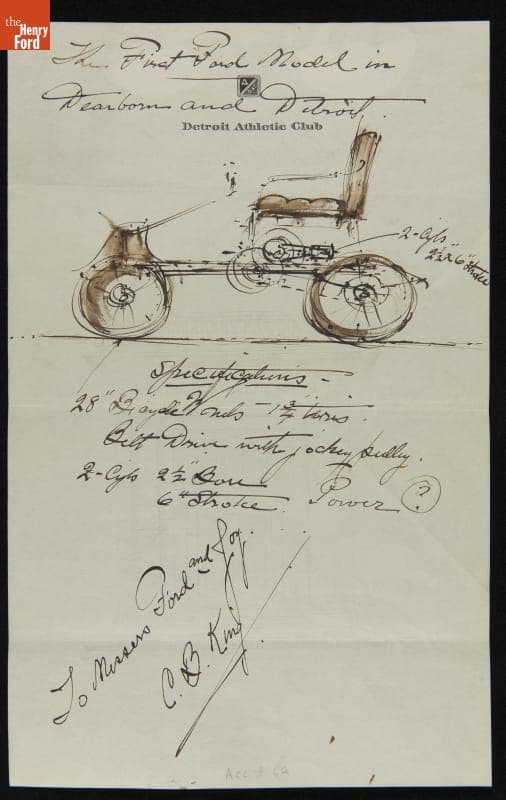 the
Henry
Ford
The First Ford Model in
Dearborn and Detroit.
DAC
Detroit Athletic Club
2-Cyls
2½ x 6" Stroke
Specifications -
28" Bicycle Wheels - 1¾ tires.
Belt Drive with jockey pulley.
2-Cyls 2½" Bore
6" Stroke. Power ?
To Messers Ford and Joy.
C. B. King
Acc # 62